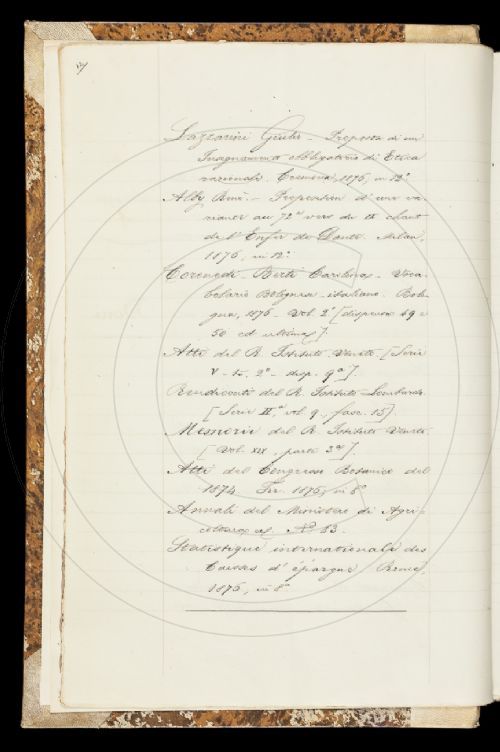 Lazzarini Giulio. Proposta di un
Insegnamento obbligatorio di Etica
razionale. Cremona, 1876, in 12º
Alby René. - Proposition d'une va-
riante au 72e vers du chant
de l'Enfer de Dante. Milan
1876, in 12º.
Coronedi-Berti Carolina. Voca-
bolario Bolognese-italiano. Bolo-
gna, 1876. Vol. 2º [dispense 49 e
50 ed ultima].
Atti del R. Istituto Veneto. [Serie
V - to. 2º - disp. 9a].
Rendiconti del R. Istituto Lombardo.
[Serie II,a vol 9, fasc. 15].
Memorie del R. Istituto Veneto.
[Vol. XIX, parte 3a].
Atti del Congresso Botanico del
1874. Fir. 1876, in 8º
Annali del Ministero di Agri-
coltura ec. Nº 83.
Statistique internationale des
Caisses d'épargne. Rome,
1876, in 8º